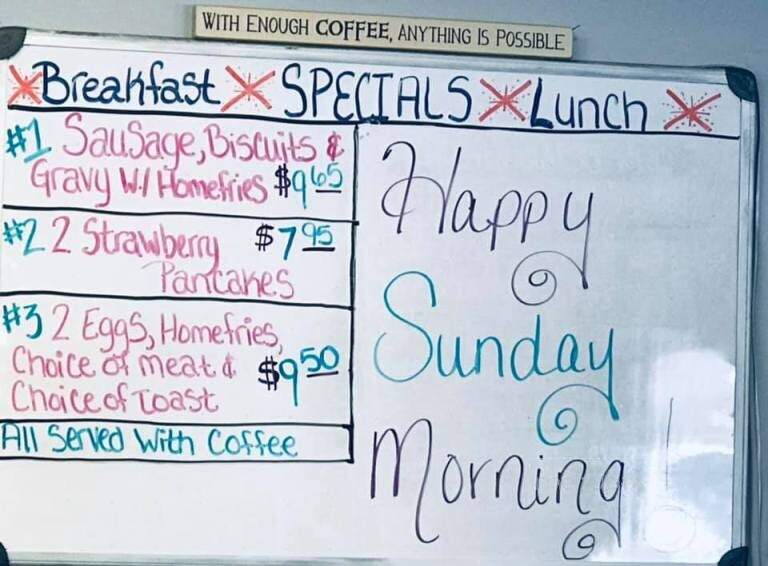 WITH ENOUGH COFFEE, ANYTHING IS POSSIBLE
Breakfast SPECIALS Lunch
#1 Sausage, Biscuits &
Gravy W/ Homefries $9.65
#2 2 Strawberry $7.95
Pancakes
#3 2 Eggs, Homefries,
Choice of meat &
Choice of Toast $9.50
All Served With Coffee
Happy
Sunday
Morning!